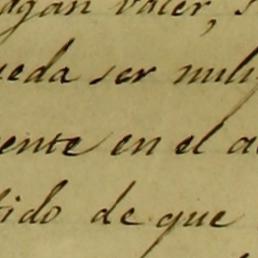 hagan valer, s
ueda ser nuly
mente en el a
tido de que